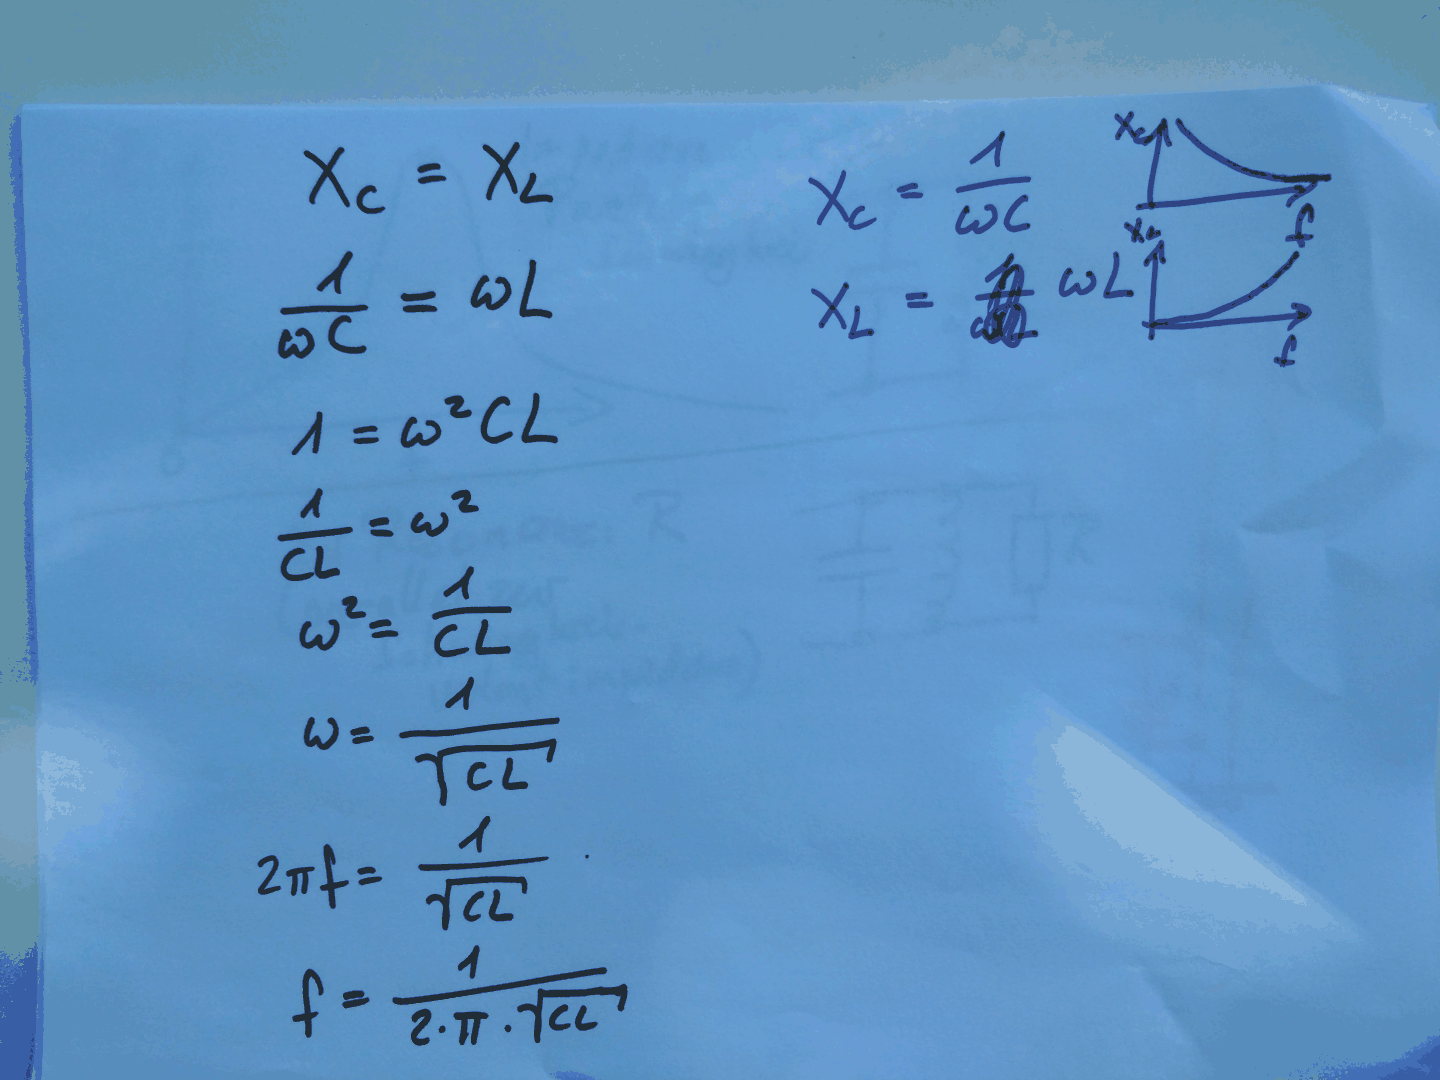 X_C = X_L
1/(ωC) = ωL
1 = ω²CL
1/(CL) = ω²
ω² = 1/(CL)
ω = 1/√(CL)
2πf = 1/√(CL)
f = 1/(2·π·√(CL))
X_C = 1/(ωC)
X_C
f
X_L = ωL
X_L
f